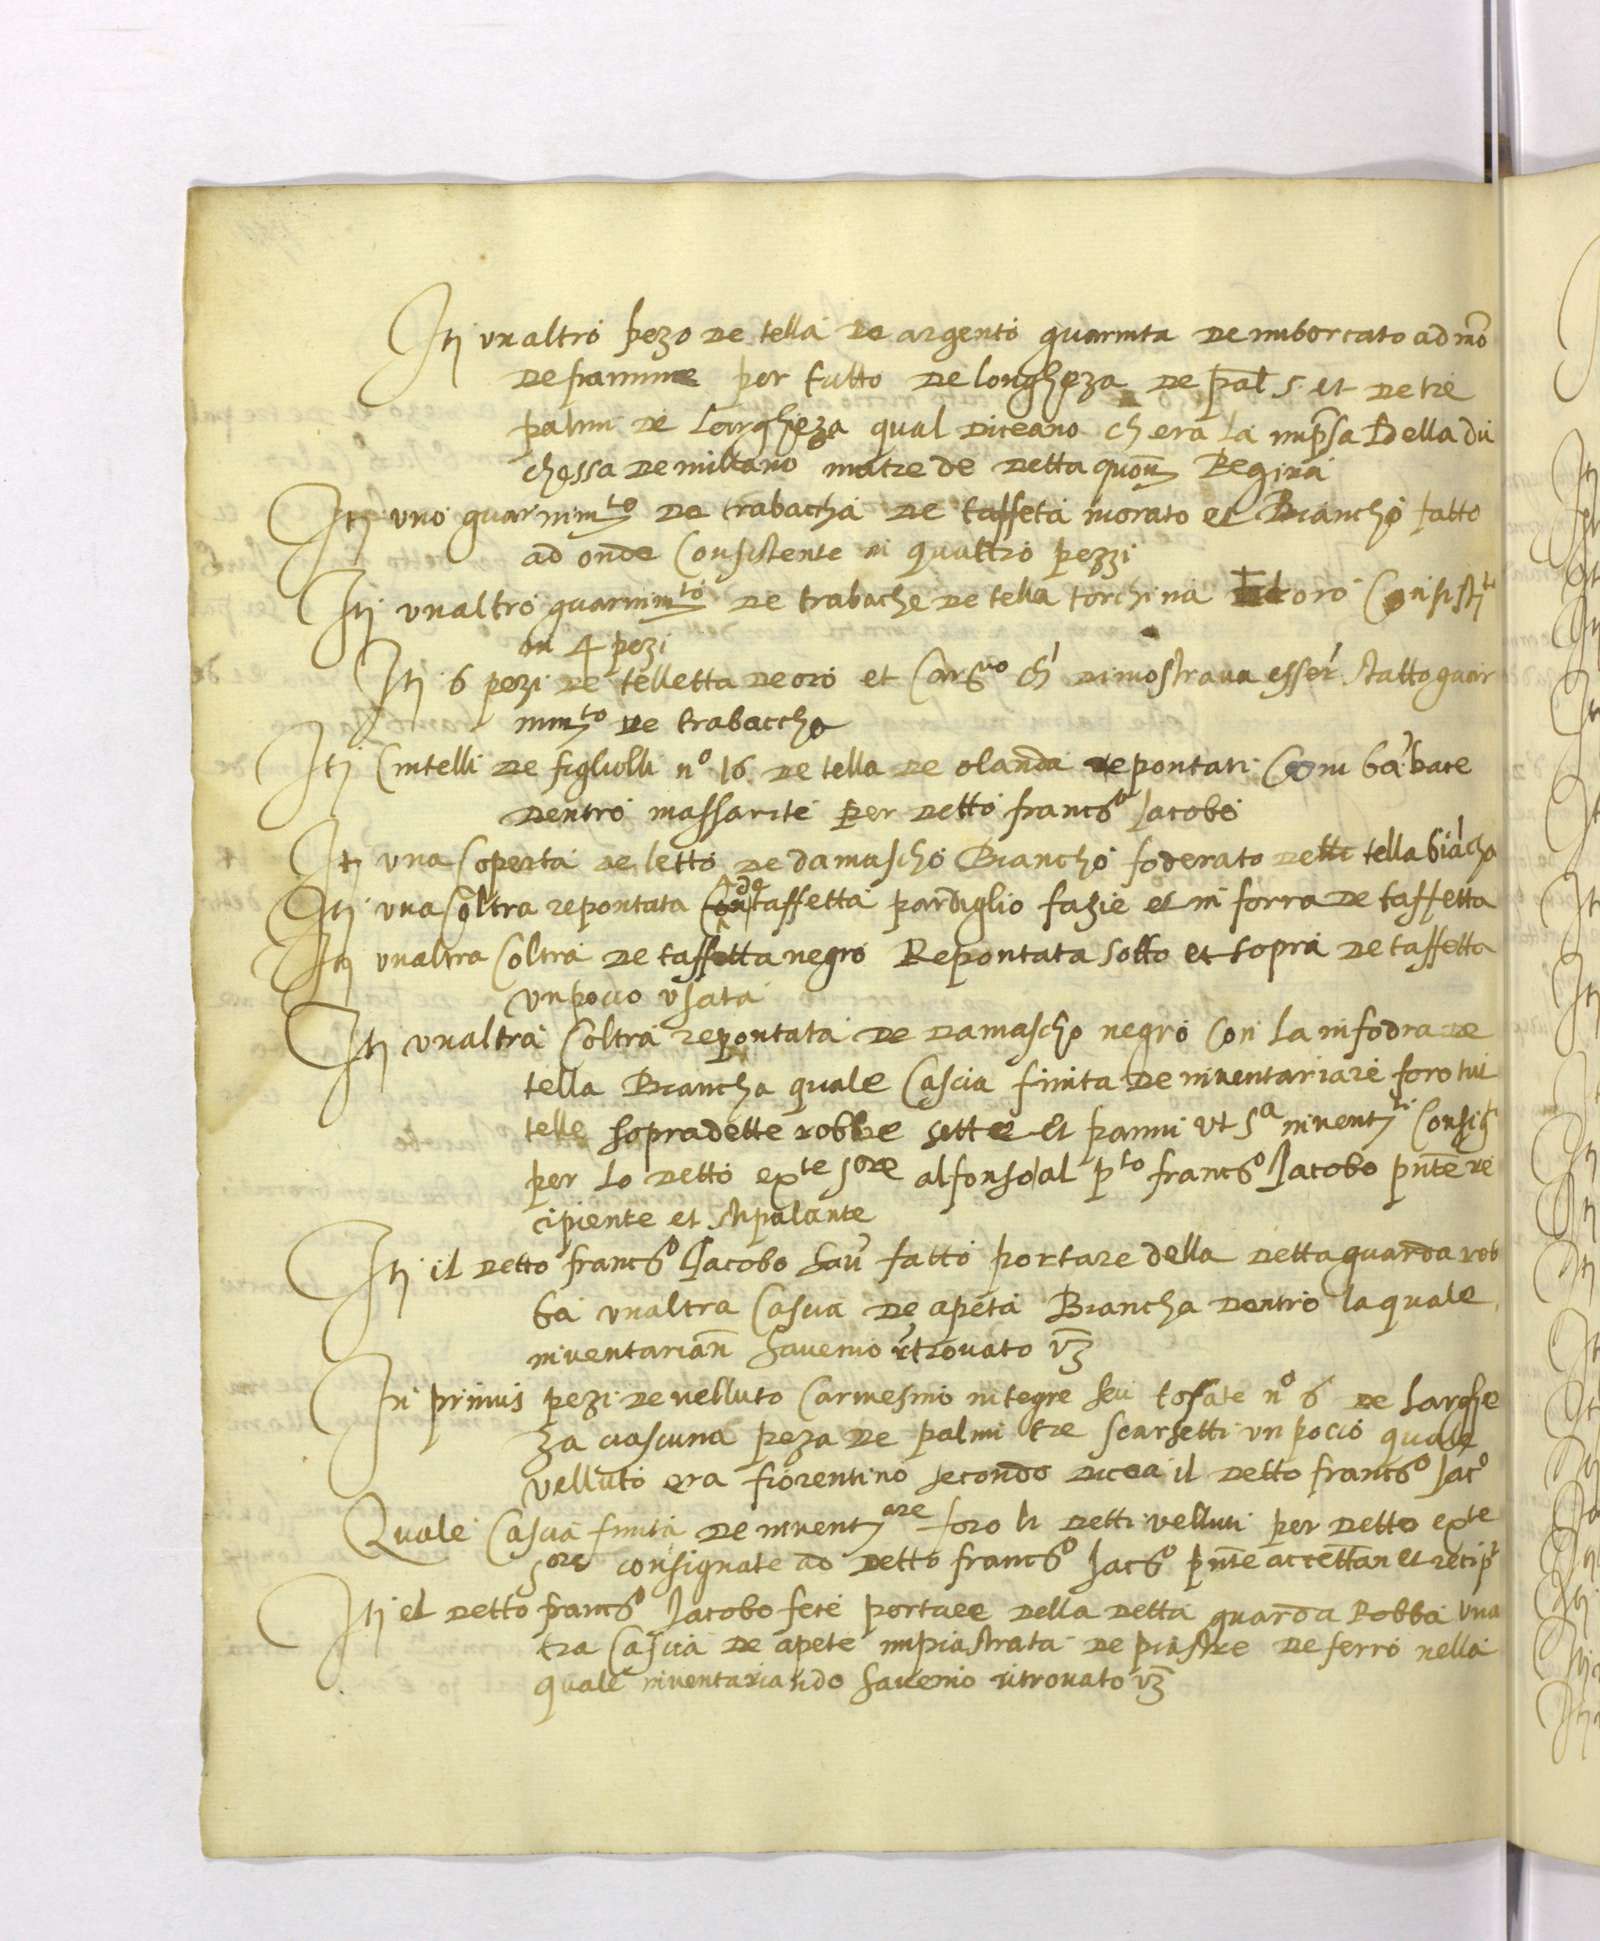 Itj un altro pezo de tella de argento guarnita de imborcato ad mō
de framme per tutto de longheza de pal 5 et de tre
palmi de Largheza qual diceano ch era la imprsa Della du
chessa de millano matre de detta quon Regina
Itj uno guarnimto de trabacha de taffeta morato et Biancho fatto
ad onde Consistente in quattro pezzi
Itj un altro guarnimto de trabache de tella torchina et oro Consistte
in 4 pezi
Itj 6 pezi de telletta de oro et Carmno ch dimostrava esser stato guar
nimto de trabaccha
Itj Cintelli de figliolli no 16 de tella de olanda repontati Com babace
dentro massarite per detto francco Jacobo
It una Coperta de letto de damascho Biancho foderato de tella biacha
Itj una Coltra repontata con de taffetta pardiglio fazie et in forra de taffetta
Itj un altra Coltra de taffetta negro Repontata sotto et sopra de taffetta
un poco usata
Itj un altra Coltra repontata de damascho negro Con La infodra de
tella Biancha quale Cascia finita de inventariare foro tut
telle sopradette robbe sette et panni ut sa inventti Consigte
per Lo detto exte sore alfonso al pto francco Jacobo pnte re
cipiente et stipulante
Itj il detto francco Jacobo hav fatto portare della detta guarda rob
ba un altra Cascia de apeta Biancha dentro la quale
inventarian havemo rtrovato vz
In primis pezi de velluto Carmesino integre seu tosate no 6 de Larghe
za ciascuna peza de palmi tre scarsetti un poco quale
velluto era fiorentino secondo dicea il detto francco Jaco
Quale Cascia finita de inventare foro li detti velluti per detto exte
sore consignate ad detto francco Jacbo pnte accettan et recipte
Itj el detto francco Jacobo fece portare della detta guarda Robba una
tra Cascia de apete impiastrata de piastre de ferro nella
quale inventariando havemo ritrovato vz